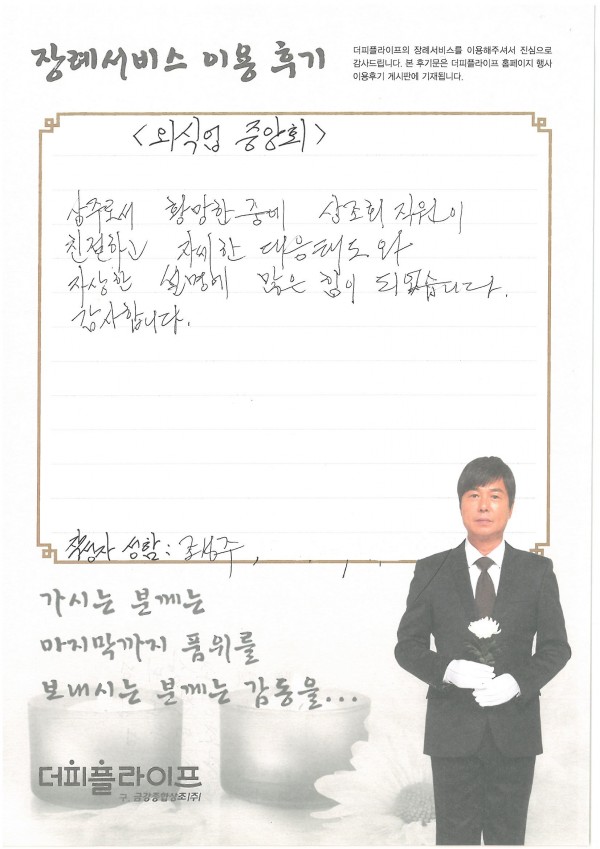 장례서비스 이용 후기
더피플라이프의 장례서비스를 이용해주셔서 진심으로
감사드립니다. 본 후기문은 더피플라이프 홈페이지 행사
이용후기 게시판에 기재됩니다.
<외식업 중앙회>
상주로써 황망한 중에 상조회 직원이
친절하고 자세한 대응태도와
자상한 설명에 많은 힘이 되었습니다.
감사합니다.
작성자 성함 :
가시는 분께는
마지막까지 품위를
보내시는 분께는 감동을...
더피플라이프
구. 금강종합상조(주)